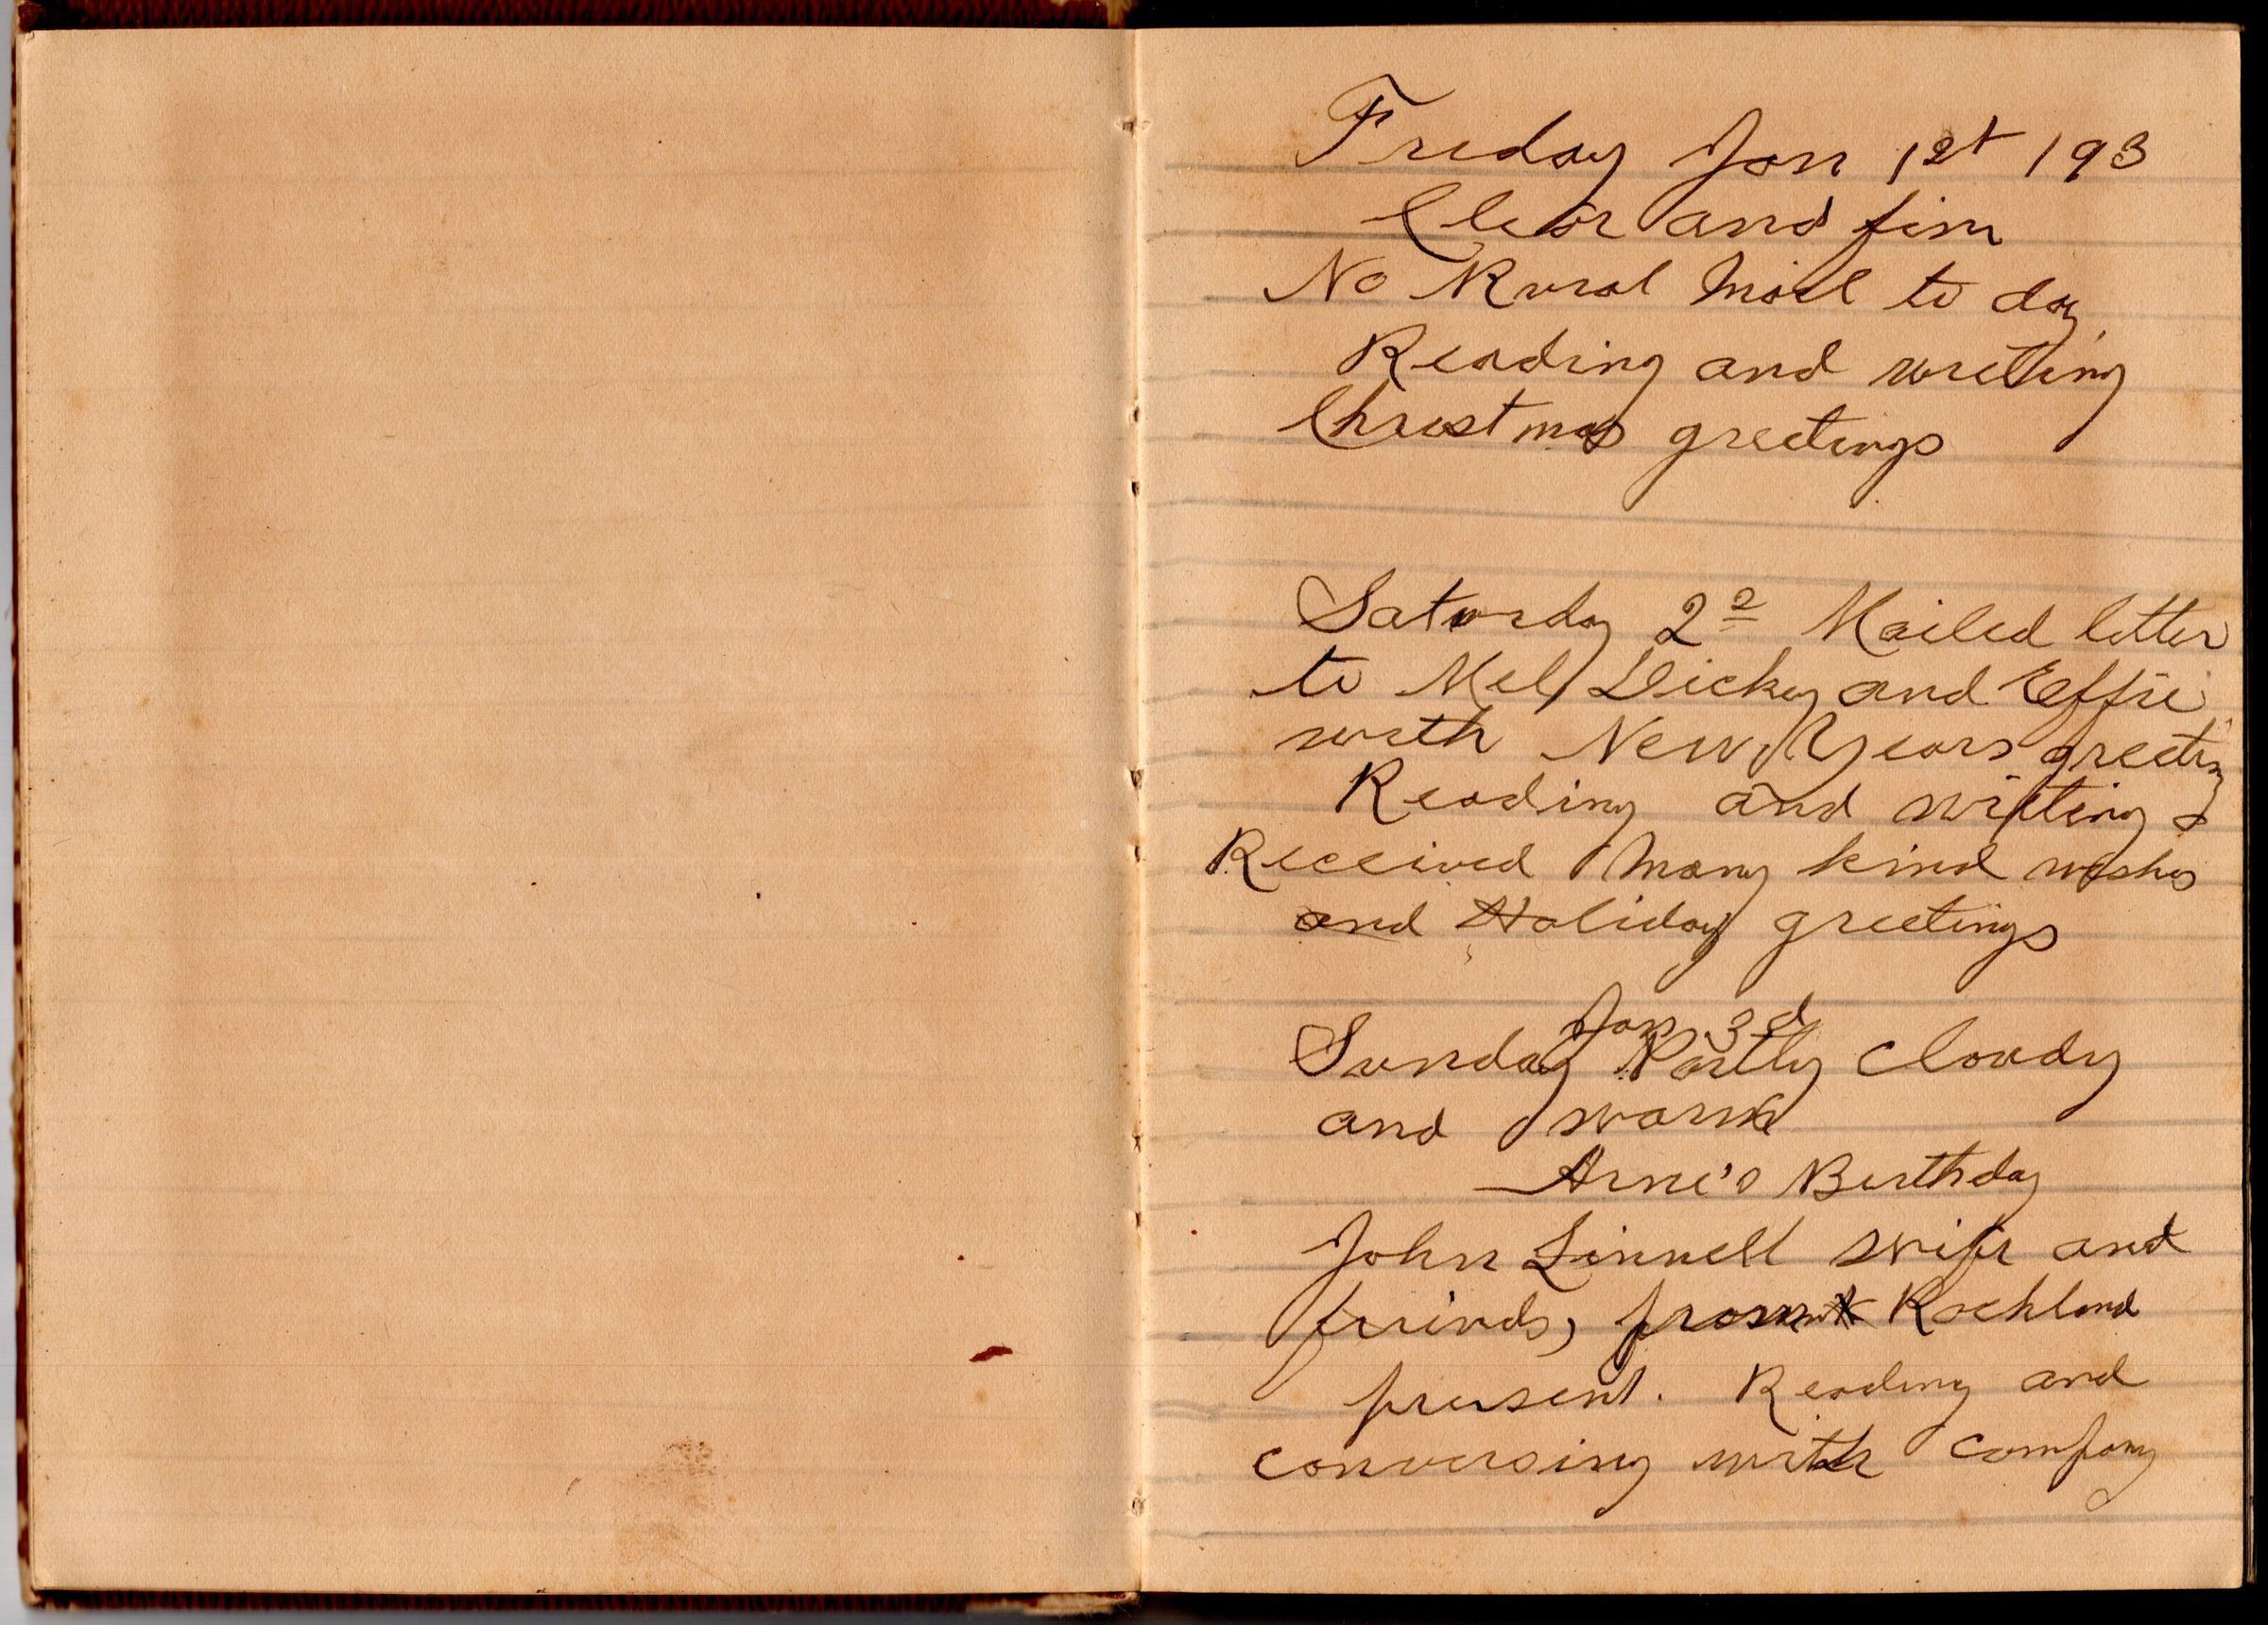 Friday Jan 1st 193
Clear and fine
No Rural Mail to day
Reading and writing
Christmas greetings
Saturday 2d Mailed letter
to Mel Dickey and Effie
with New Years greeting
Reading and writing
Received Many kind wishes
and Holiday greetings
Jan. 3d
Sunday Partly Cloudy
and warm
Arne's Birthday
John Linnell wife and
friends, from Rockland
present. Reading and
conversing with company